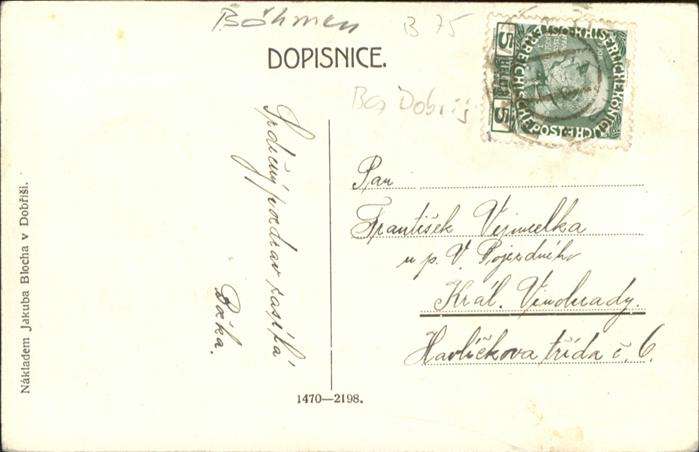 Böhmen
B 75
DOPISNICE.
Bez. Dobřiš
5 HELLER 5
KAISERLICHEKÖNIGLICHE ÖSTERREICHISCHE POST
Srdečný pozdrav zasílá
Božka.
Pan
František Vejmelka
u p. V. Pojezdného
Král. Vinohrady.
Havlíčkova třída č. 6.
Nákladem Jakuba Blocha v Dobříši.
1470—2198.